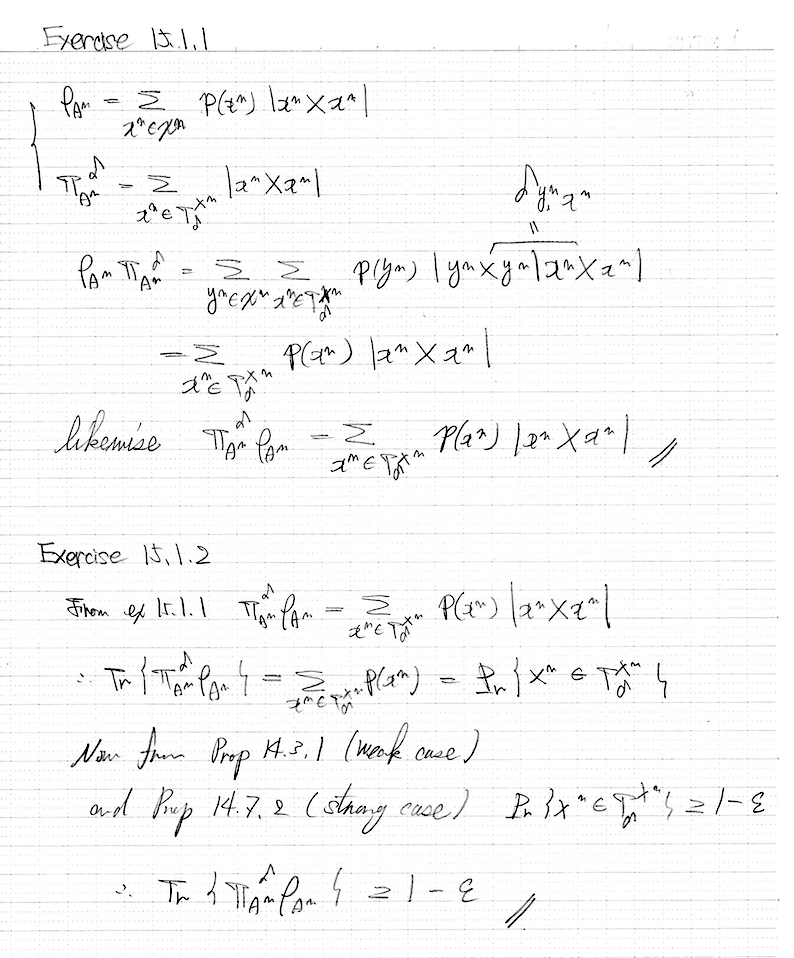 Exercise 15.1.1
ρ_{A^n} = Σ_{x^n∈𝒳^n} P(x^n) |x^n⟩⟨x^n|
Π^δ_{A^n} = Σ_{x^n∈T_δ^{X^n}} |x^n⟩⟨x^n|
δ_{y^n, x^n}
॥
ρ_{A^n} Π^δ_{A^n} = Σ_{y^n∈𝒳^n} Σ_{x^n∈T_δ^{X^n}} P(y^n) |y^n⟩⟨y^n|x^n⟩⟨x^n|
= Σ_{x^n∈T_δ^{X^n}} P(x^n) |x^n⟩⟨x^n|
likewise Π^δ_{A^n} ρ_{A^n} = Σ_{x^n∈T_δ^{X^n}} P(x^n) |x^n⟩⟨x^n| //
Exercise 15.1.2
From ex 15.1.1 Π^δ_{A^n} ρ_{A^n} = Σ_{x^n∈T_δ^{X^n}} P(x^n) |x^n⟩⟨x^n|
∴ Tr {Π^δ_{A^n} ρ_{A^n}} = Σ_{x^n∈T_δ^{X^n}} P(x^n) = Pr {X^n ∈ T_δ^{X^n}}
Now from Prop 14.3.1 (weak case)
and Prop 14.7.2 (strong case) Pr {X^n ∈ T_δ^{X^n}} ≥ 1 - ε
∴ Tr {Π^δ_{A^n} ρ_{A^n}} ≥ 1 - ε //